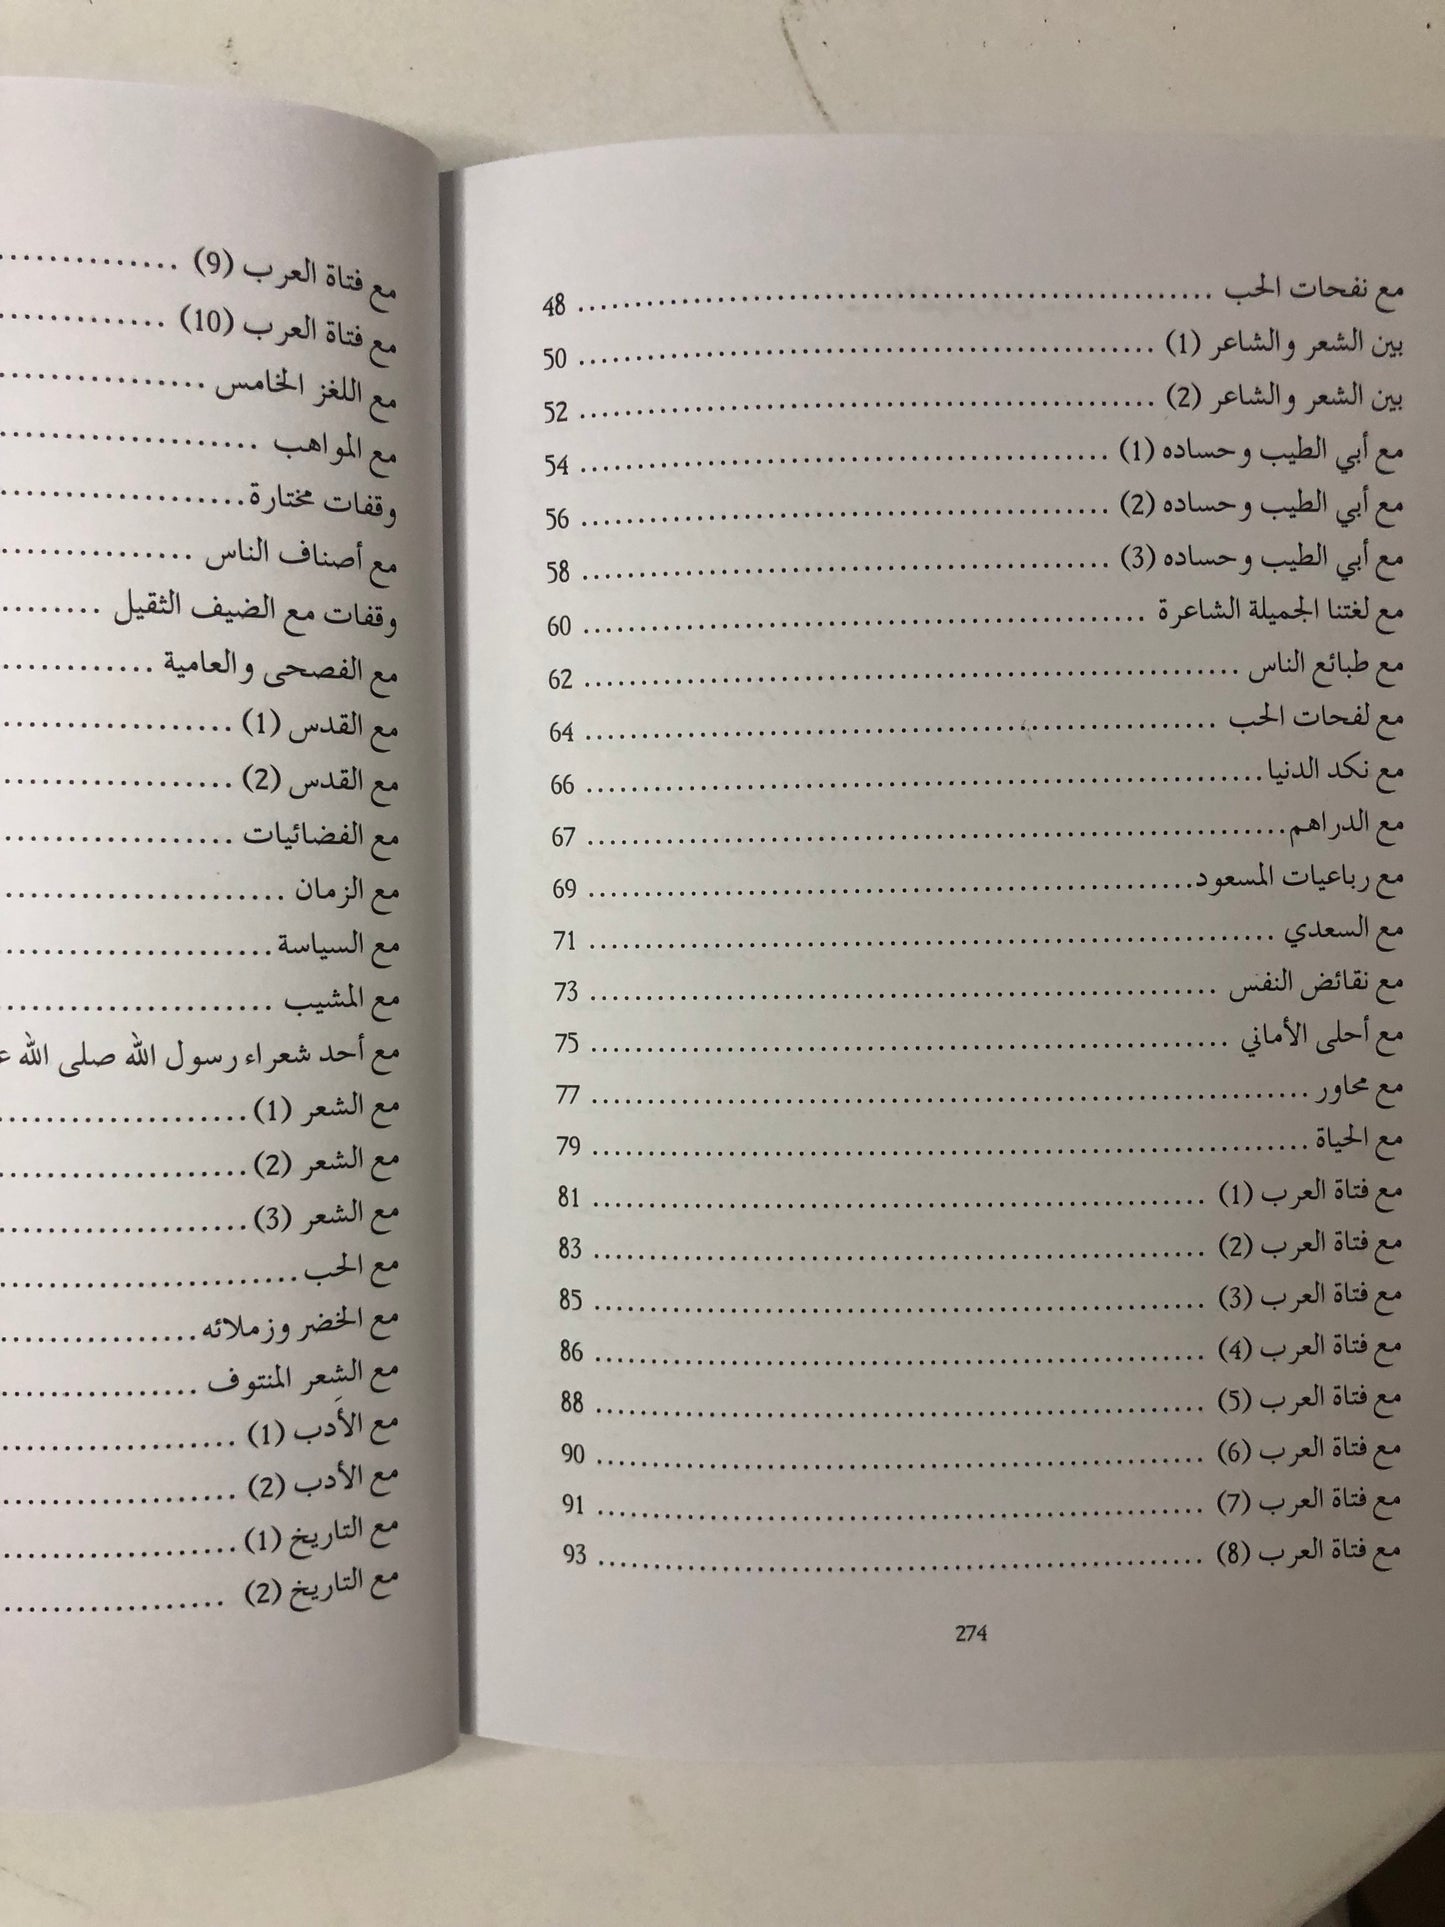 مع نفحات الحب ........ 48
بين الشعر والشاعر (1) ........ 50
بين الشعر والشاعر (2) ........ 52
مع أبي الطيب وحساده (1) ........ 54
مع أبي الطيب وحساده (2) ........ 56
مع أبي الطيب وحساده (3) ........ 58
مع لغتنا الجميلة الشاعرة ........ 60
مع طبائع الناس ........ 62
مع لفحات الحب ........ 64
مع نكد الدنيا ........ 66
مع الدراهم ........ 67
مع رباعيات المسعود ........ 69
مع السعدي ........ 71
مع نقائض النفس ........ 73
مع أحلى الأماني ........ 75
مع محاور ........ 77
مع الحياة ........ 79
مع فتاة العرب (1) ........ 81
مع فتاة العرب (2) ........ 83
مع فتاة العرب (3) ........ 85
مع فتاة العرب (4) ........ 86
مع فتاة العرب (5) ........ 88
مع فتاة العرب (6) ........ 90
مع فتاة العرب (7) ........ 91
مع فتاة العرب (8) ........ 93
274
مع فتاة العرب (9) ........
مع فتاة العرب (10) ........
مع اللغز الخامس ........
مع المواهب ........
وقفات مختارة ........
مع أصناف الناس ........
وقفات مع الضيف الثقيل ........
مع الفصحى والعامية ........
مع القدس (1) ........
مع القدس (2) ........
مع الفضائيات ........
مع الزمان ........
مع السياسة ........
مع المشيب ........
مع أحد شعراء رسول الله صلى الله
مع الشعر (1) ........
مع الشعر (2) ........
مع الشعر (3) ........
مع الحب ........
مع الخضر وزملائه ........
مع الشِعر المنتوف ........
مع الأدب (1) ........
مع الأدب (2) ........
مع التاريخ (1) ........
مع التاريخ (2) ........